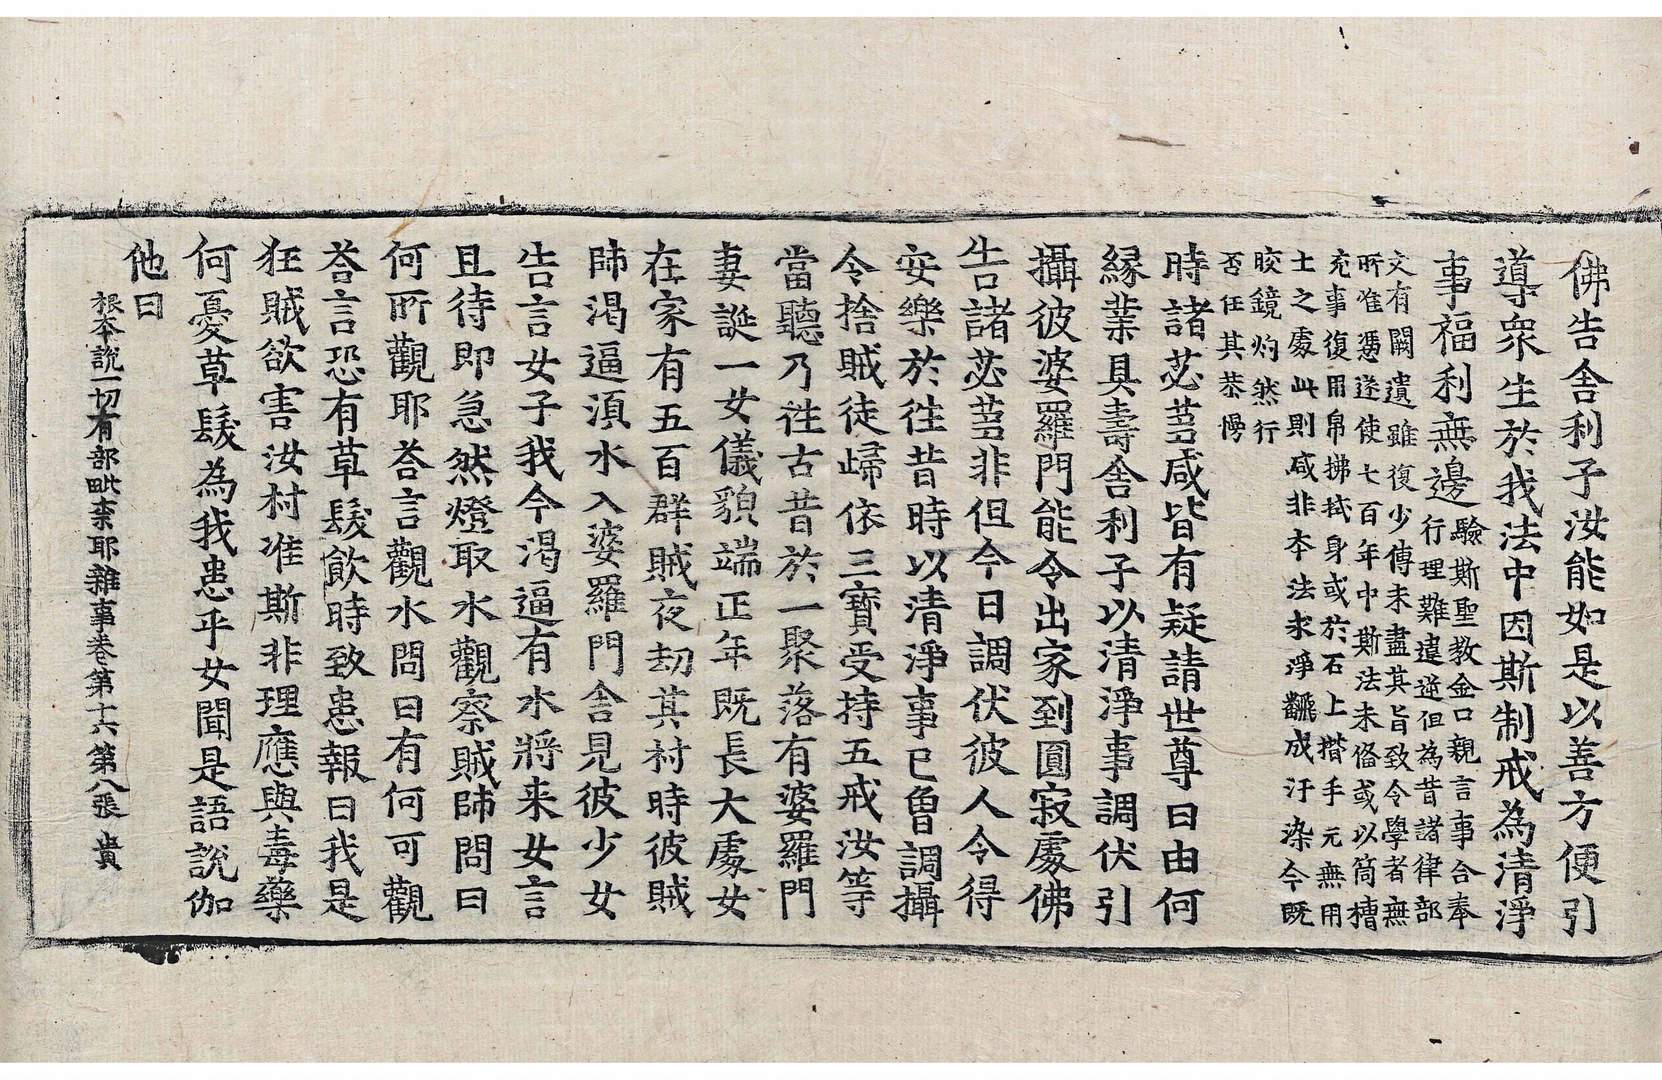 佛告舍利子汝能如是以善方便引
導衆生於我法中因斯制戒為清淨
事福利無邊
驗斯聖教金口親言事合奉
行理難違逆但為昔諸律部
文有闕遺雖復少傳未盡其旨致令學者無
所准憑遂使七百年中斯法未俻或以筒槽
充事復用帛拂拭身或於石上揩手元無用
士之處此則咸非本法求淨飜成汙染今既
皎鏡灼然行
否任其恭慢
時諸苾蒭咸皆有疑請世尊曰由何
縁業具壽舍利子以清淨事調伏引
攝彼婆羅門能令出家到圓寂處佛
告諸苾蒭非但今日調伏彼人令得
安樂於往昔時以清淨事已曾調攝
令捨賊徒歸依三寶受持五戒汝等
當聽乃往古昔於一聚落有婆羅門
妻誕一女儀貌端正年既長大處女
在家有五百群賊夜劫其村時彼賊
師渇逼須水入婆羅門舍見彼少女
告言女子我今渇逼有水將来女言
且待即急然燈取水觀察賊師問曰
何所觀耶荅言觀水問曰有何可觀
荅言恐有草髮飲時致患報曰我是
狂賊欲害汝村准斯非理應與毒藥
何憂草髮為我患乎女聞是語說伽
他曰
根本說一切有部毗柰耶雜事卷第十六第八張 貴